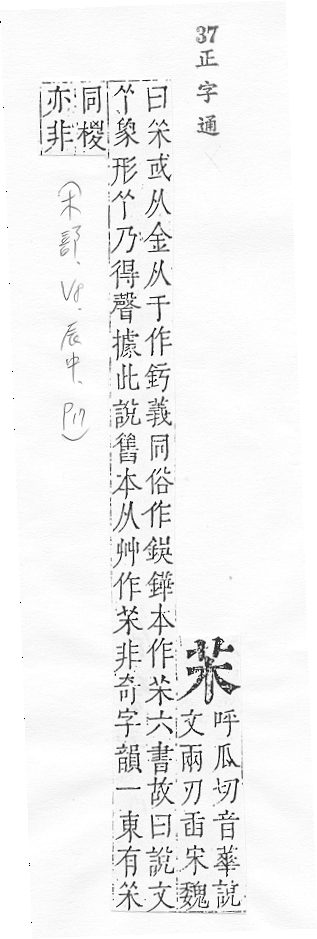 37 正字通
茉
呼瓜切音華說
文兩刃臿宋魏
曰茉或从金从于作釫義同俗作鋘鏵本作茉六書故曰說文
象形乃得聲據此說舊本从艸作茉非奇字韻一東有茉
同椶
亦非
(木部、V8. 辰中、P17)